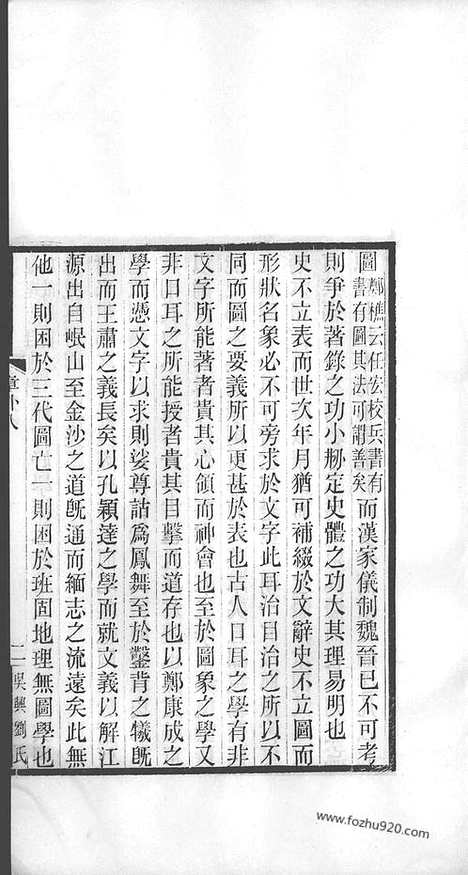 圖鄭樵云任宏校兵書有書有圖其法可謂善矣而漢家儀制魏晉已不可考
則爭於著錄之功小刱定史體之功大其理易明也
史不立表而世次年月猶可補綴於文辭史不立圖而
形狀名象必不可旁求於文字此耳治目治之所以不
同而圖之要義所以更甚於表也古人口耳之學有非
文字所能著者貴其心領而神會也至於圖象之學又
非口耳之所能授者貴其目擊而道存也以鄭康成之
學而憑文字以求則娑尊詁爲鳳舞至於鑿背之犧旣
出而王肅之義長矣以孔穎達之學而就文義以解江
源出自岷山至金沙之道旣通而緬志之流遠矣此無
他一則困於三代圖亡一則困於班固地理無圖學也
二
吳興劉氏
www.fozhu920.com